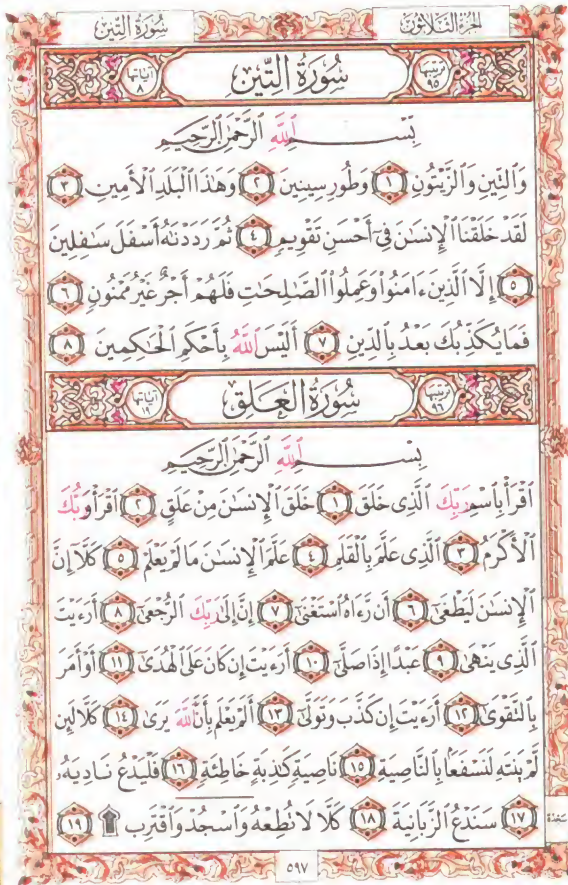 سُورَةُ التِّينِ الجُزءُ الثَّلَاثُونَ
ترتيبها ٩٥ سُورَةُ التِّينِ آياتها ٨
بِسْمِ اللَّهِ الرَّحْمَٰنِ الرَّحِيمِ
وَٱلتِّينِ وَٱلزَّيْتُونِ ١ وَطُورِ سِينِينَ ٢ وَهَٰذَا ٱلْبَلَدِ ٱلْأَمِينِ ٣
لَقَدْ خَلَقْنَا ٱلْإِنسَٰنَ فِىٓ أَحْسَنِ تَقْوِيمٍ ٤ ثُمَّ رَدَدْنَٰهُ أَسْفَلَ سَٰفِلِينَ
٥ إِلَّا ٱلَّذِينَ ءَامَنُوا۟ وَعَمِلُوا۟ ٱلصَّٰلِحَٰتِ فَلَهُمْ أَجْرٌ غَيْرُ مَمْنُونٍ ٦
فَمَا يُكَذِّبُكَ بَعْدُ بِٱلدِّينِ ٧ أَلَيْسَ ٱللَّهُ بِأَحْكَمِ ٱلْحَٰكِمِينَ ٨
ترتيبها ٩٦ سُورَةُ العَلَقِ آياتها ١٩
بِسْمِ اللَّهِ الرَّحْمَٰنِ الرَّحِيمِ
ٱقْرَأْ بِٱسْمِ رَبِّكَ ٱلَّذِى خَلَقَ ١ خَلَقَ ٱلْإِنسَٰنَ مِنْ عَلَقٍ ٢ ٱقْرَأْ وَرَبُّكَ
ٱلْأَكْرَمُ ٣ ٱلَّذِى عَلَّمَ بِٱلْقَلَمِ ٤ عَلَّمَ ٱلْإِنسَٰنَ مَا لَمْ يَعْلَمْ ٥ كَلَّآ إِنَّ
ٱلْإِنسَٰنَ لَيَطْغَىٰٓ ٦ أَن رَّءَاهُ ٱسْتَغْنَىٰٓ ٧ إِنَّ إِلَىٰ رَبِّكَ ٱلرُّجْعَىٰٓ ٨ أَرَءَيْتَ
ٱلَّذِى يَنْهَىٰ ٩ عَبْدًا إِذَا صَلَّىٰٓ ١٠ أَرَءَيْتَ إِن كَانَ عَلَى ٱلْهُدَىٰٓ ١١ أَوْ أَمَرَ
بِٱلتَّقْوَىٰٓ ١٢ أَرَءَيْتَ إِن كَذَّبَ وَتَوَلَّىٰٓ ١٣ أَلَمْ يَعْلَم بِأَنَّ ٱللَّهَ يَرَىٰ ١٤ كَلَّا لَئِن
لَّمْ يَنتَهِ لَنَسْفَعًۢا بِٱلنَّاصِيَةِ ١٥ نَاصِيَةٍ كَٰذِبَةٍ خَاطِئَةٍ ١٦ فَلْيَدْعُ نَادِيَهُۥ
١٧ سَنَدْعُ ٱلزَّبَانِيَةَ ١٨ كَلَّا لَا تُطِعْهُ وَٱسْجُدْ وَٱقْتَرِب ۩ ١٩
سجدة
٥٩٧